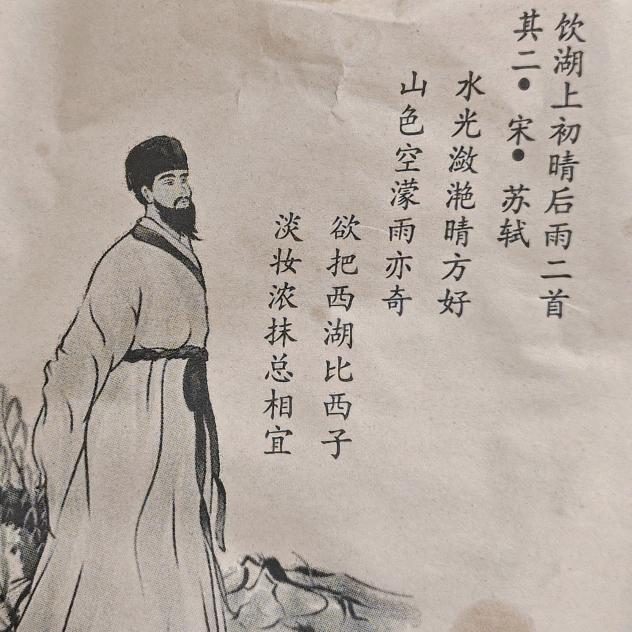 饮湖上初晴后雨二首
其二•宋•苏轼
水光潋滟晴方好
山色空濛雨亦奇
欲把西湖比西子
淡妆浓抹总相宜